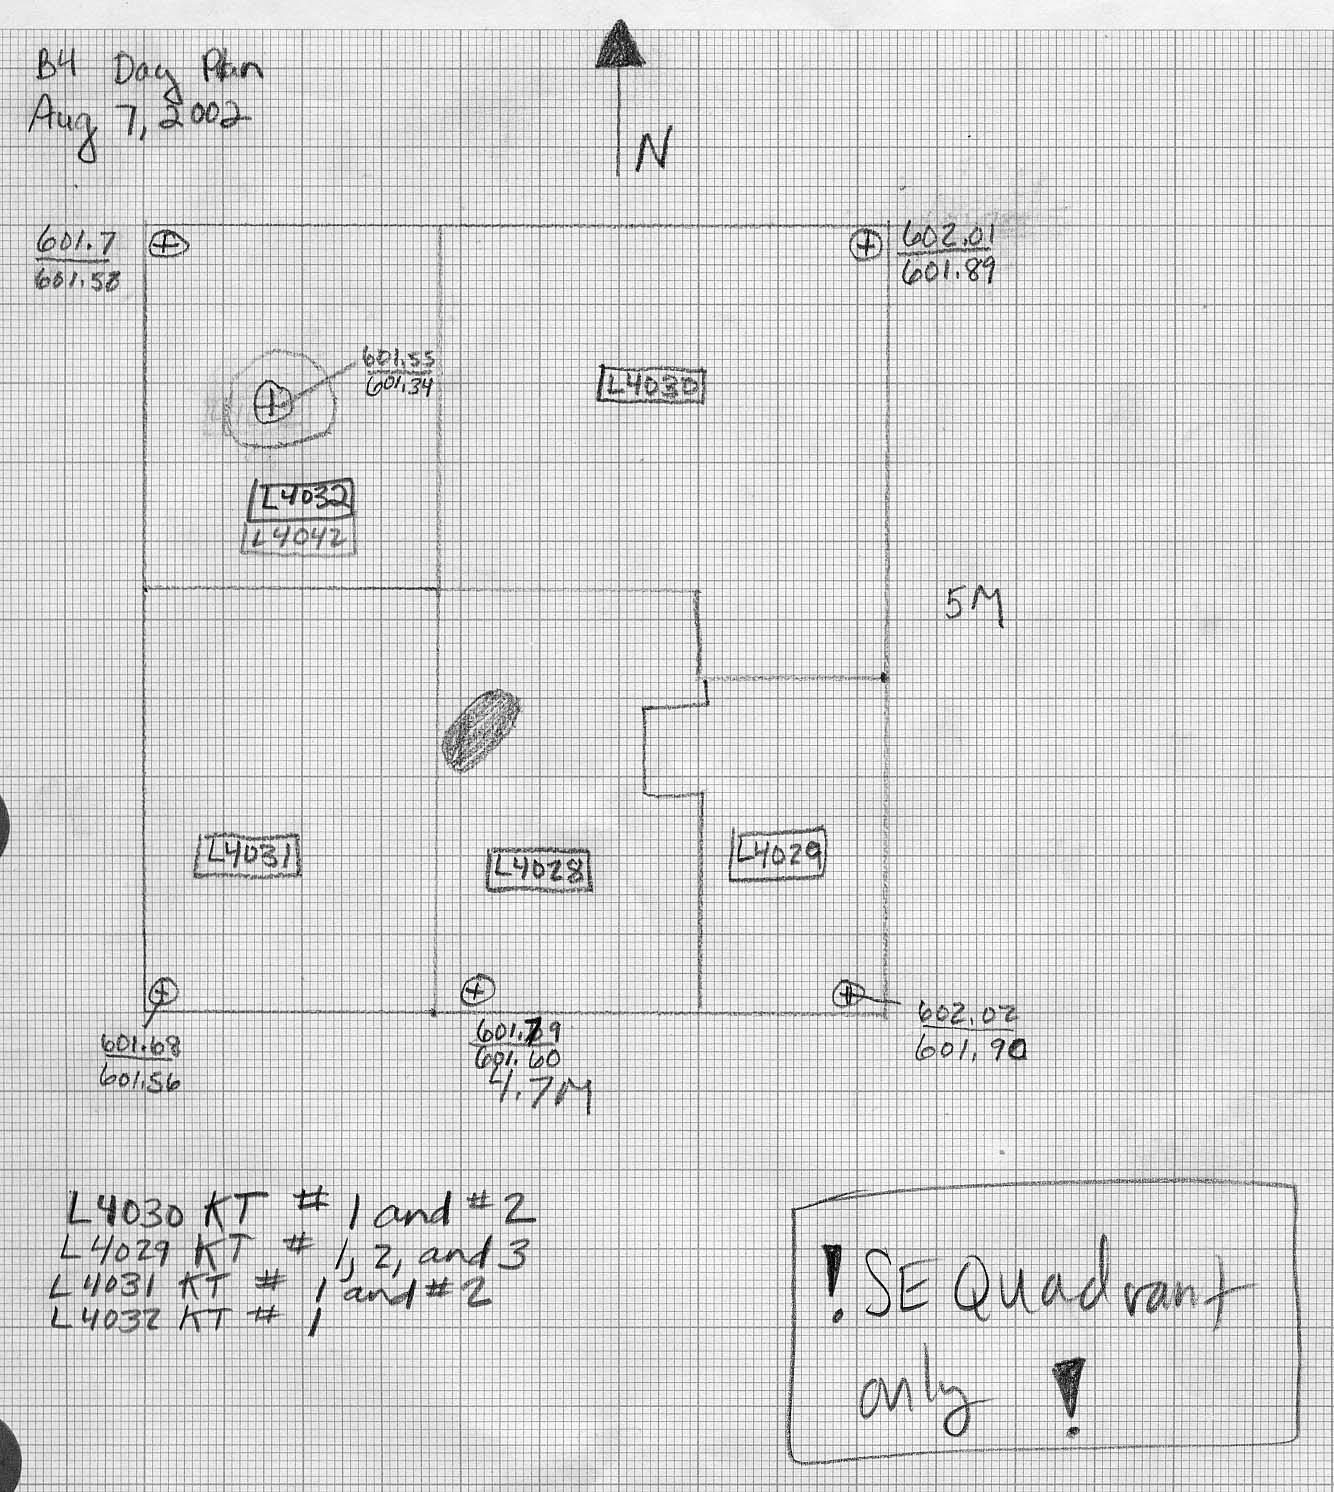 B4 Day Plan
Aug 7, 2002
N
601.7
601.58
602.01
601.89
601.55
601.34
L4030
L4032
L4042
5M
L4031
L4028
L4029
601.68
601.56
601.79
601.60
4.7M
602.02
601.90
L4030 KT # 1 and #2
L4029 KT # 1, 2, and 3
L4031 KT # 1 and #2
L4032 KT # 1
! SE Quadrant
only !